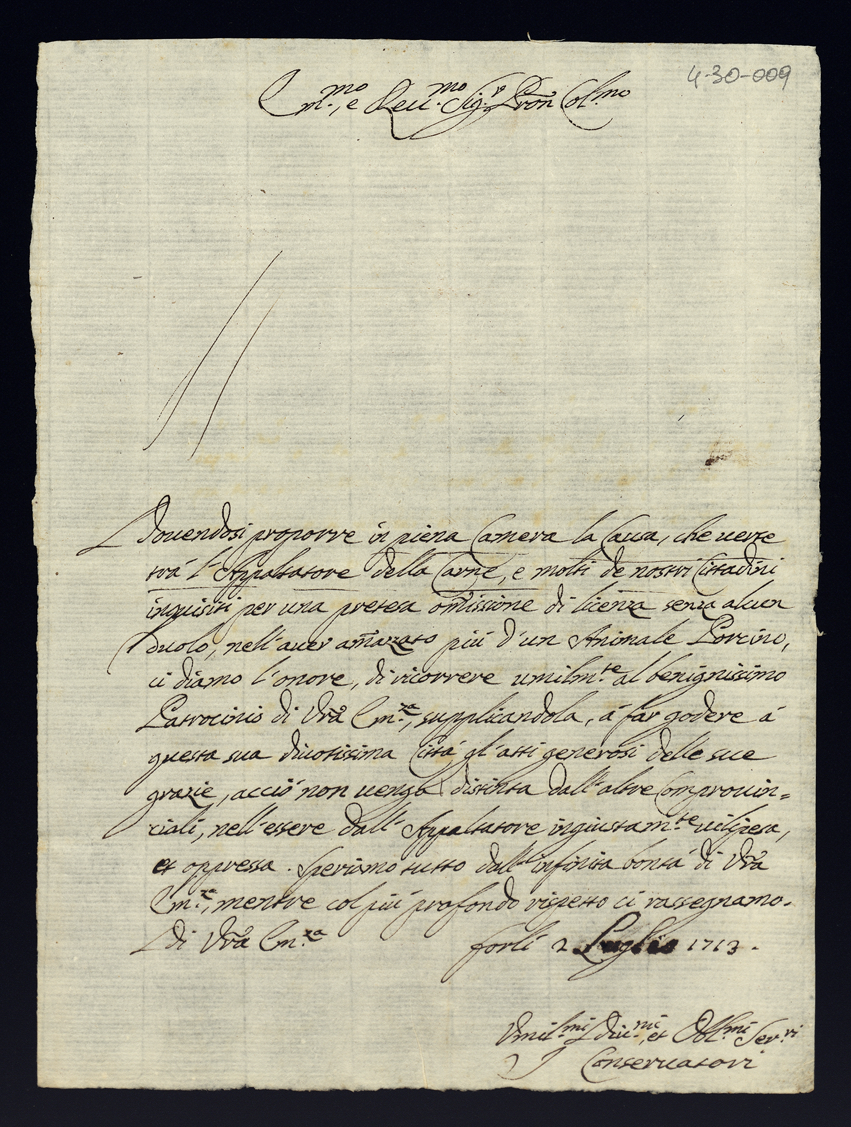 4-30-009
Em.mo, e Reu.mo Sig.re Pron Col.mo
Douendosi proporre in piena Camera la Causa, che uerte
trà l'Appaltatore della Carne, e molti de nostri Cittadini
inquisiti per una pretesa omissione di licenza senza alcun
duolo, nell'auer amazato più d'un Animale Porcino,
ci diamo l'onore, di ricorrere umilm.te al benignissimo
Patrocinio di Vrã Em.za, supplicandola, à far godere à
questa sua diuotissima Città gl'atti generosi delle sue
grazie, acciò non uenga distinta dall'altre Comprouin=
ciali, nell'essere dall'Appaltatore ingiustam.te uilipesa,
et oppressa. Speriamo tutto dall'infinita bontà di Vrã
Em.za, mentre col più profondo rispetto ci rassegnamo.
Di Vrã Em.za Forlì 2 Luglio 1713.
Vmil.mi Diu.mi, et Obl.mi Ser.ri
I Conseruatori